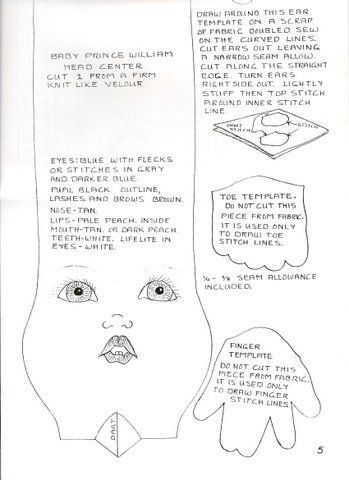 BABY PRINCE WILLIAM
HEAD CENTER
CUT 1 FROM A FIRM
KNIT LIKE VELOUR.
EYES: BLUE WITH FLECKS
OR STITCHES IN GRAY
AND DARKER BLUE.
PUPIL BLACK. OUTLINE,
LASHES AND BROWS BROWN.
NOSE-TAN.
LIPS-PALE PEACH. INSIDE
MOUTH-TAN. OR DARK PEACH.
TEETH-WHITE. LIFELITE IN
EYES-WHITE.
DART
DRAW AROUND THIS EAR
TEMPLATE ON A SCRAP
OF FABRIC DOUBLED. SEW
ON THE CURVED LINES.
CUT EARS OUT LEAVING
A NARROW SEAM ALLOW.
CUT ALONG THE STRAIGHT
EDGE. TURN EARS
RIGHT SIDE OUT. LIGHTLY
STUFF THEN TOP STITCH
AROUND INNER STITCH
LINE.
DON'T STITCH
STITCH
TOE TEMPLATE.
DO NOT CUT THIS
PIECE FROM FABRIC.
IT IS USED ONLY
TO DRAW TOE
STITCH LINES.
¼ - ⅜ SEAM ALLOWANCE
INCLUDED.
FINGER
TEMPLATE
DO NOT CUT THIS
PIECE FROM FABRIC.
IT IS USED ONLY
TO DRAW FINGER
STITCH LINES
5